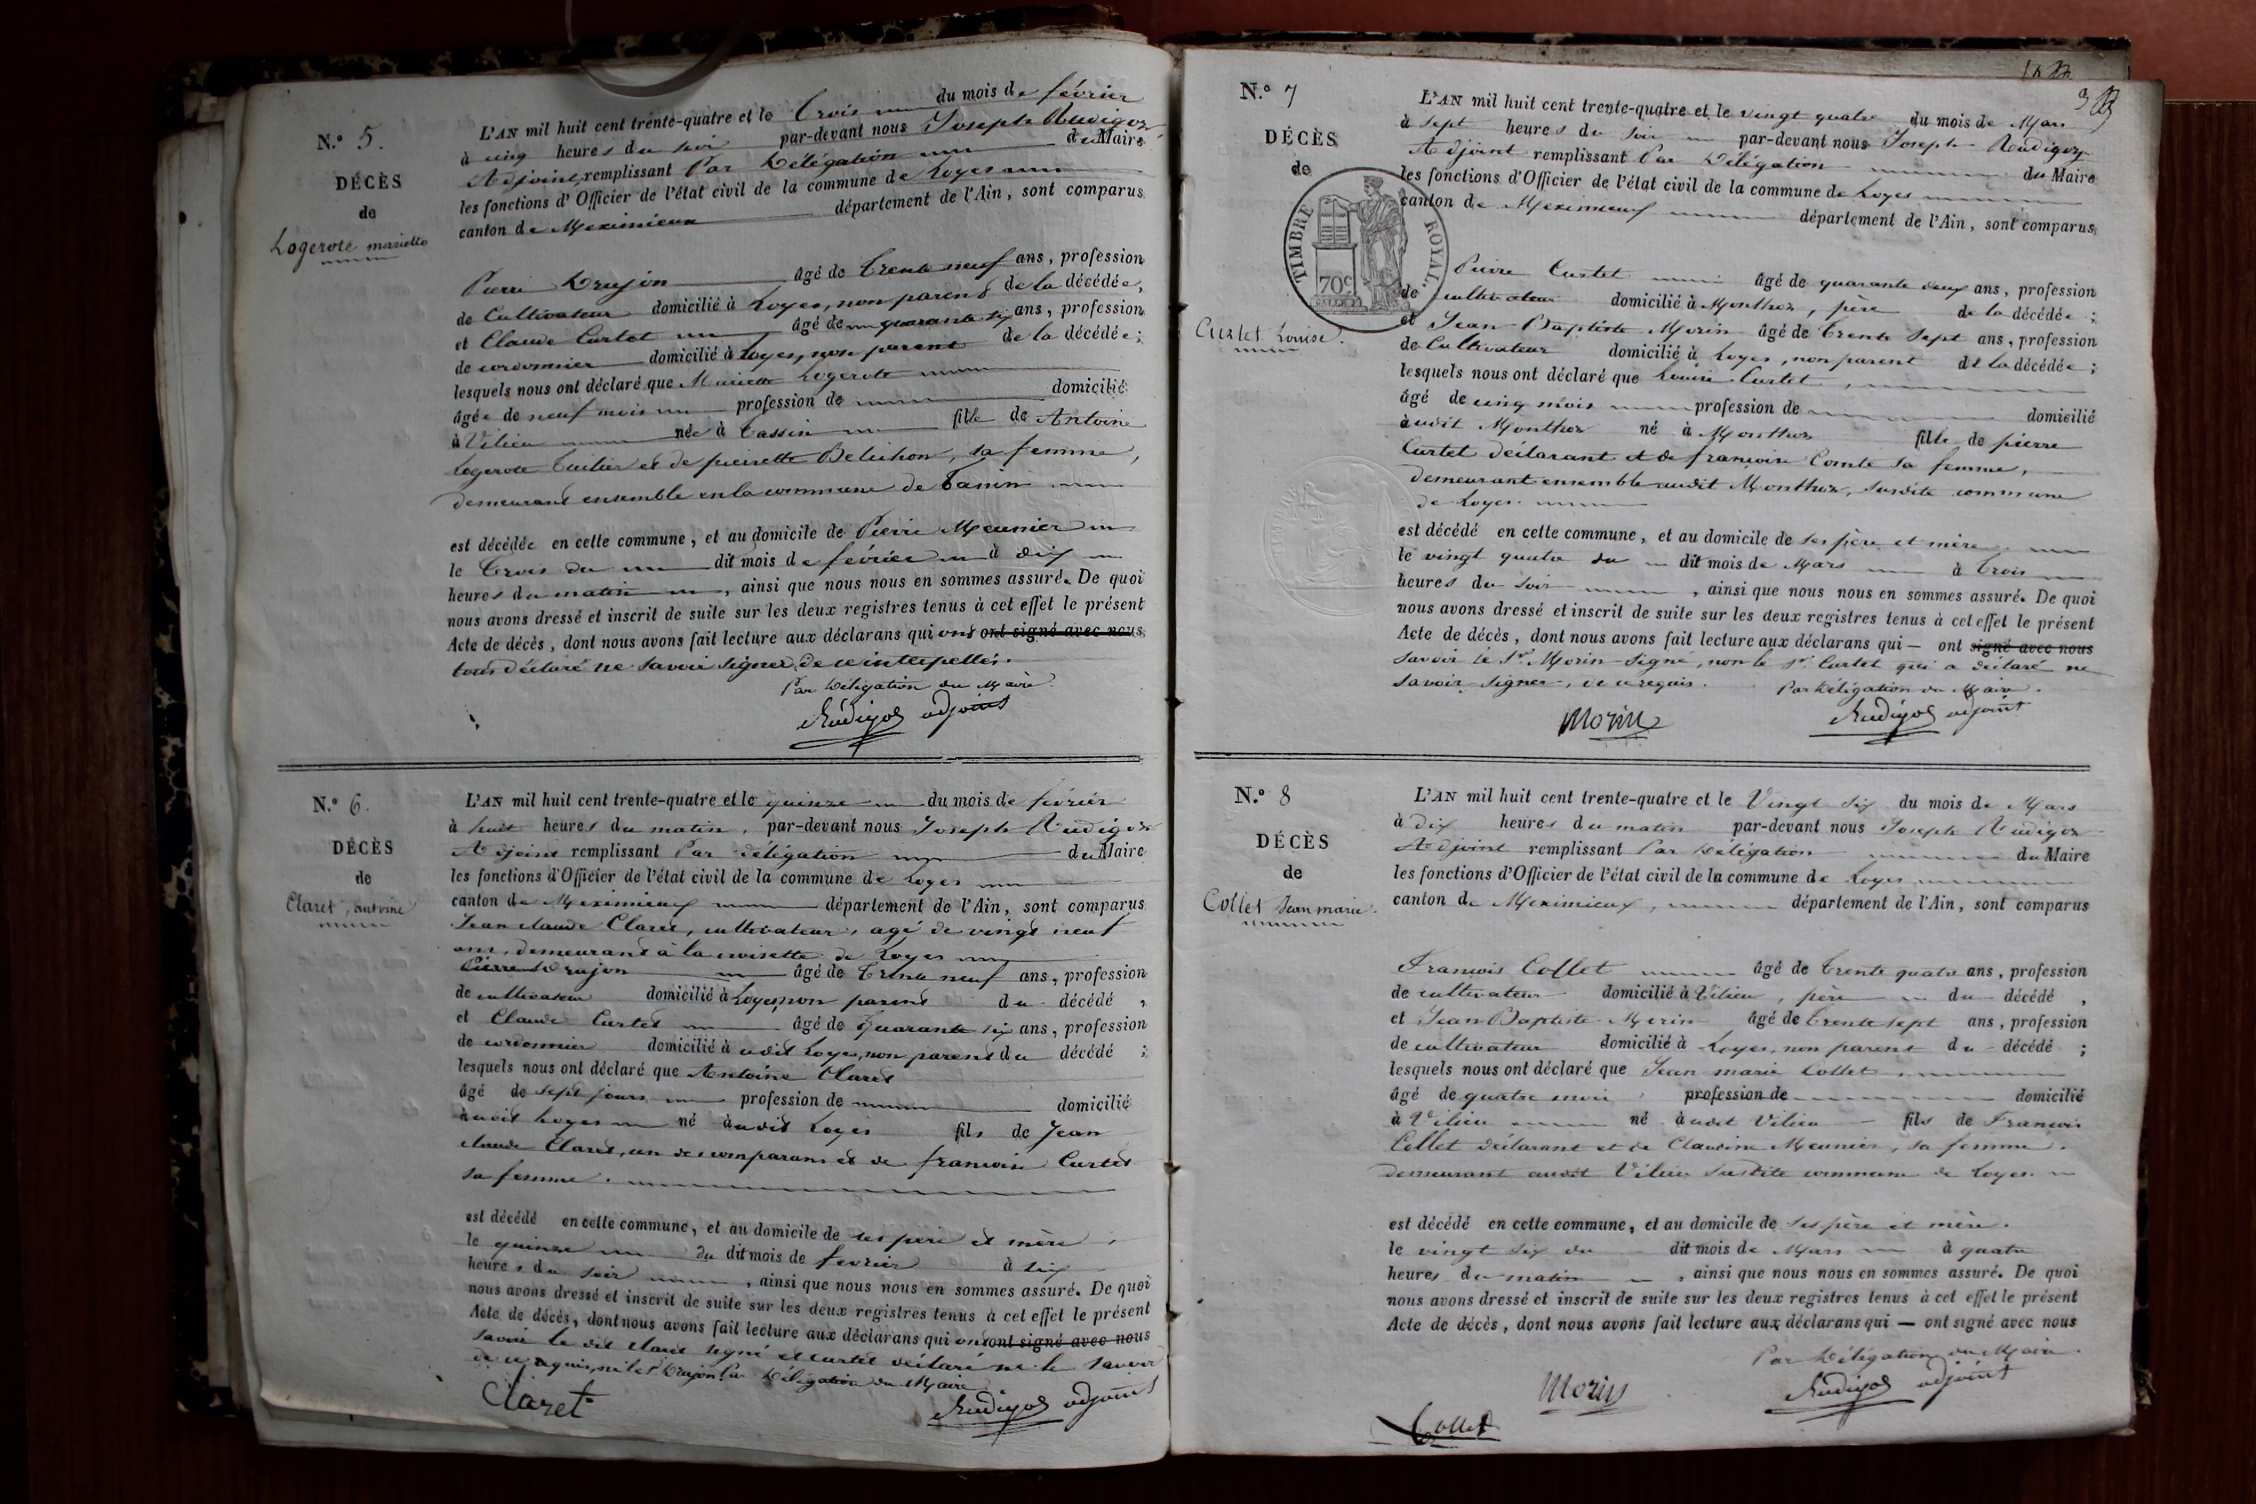 N.° 5.
DÉCÈS
de
Logerote mariette
L'AN mil huit cent trente-quatre et le trois du mois de février
à cinq heures du soir par-devant nous Joseph Rudigoz
Adjoint remplissant Par Délégation du Maire
les fonctions d'Officier de l'état civil de la commune de Loyes
canton de Meximieux département de l'Ain, sont comparus
Pierre Drujon âgé de trente neuf ans, profession
de Cultivateur domicilié à Loyes, non parent de la décédée,
et Claude Curtet âgé de quarante six ans, profession
de cordonnier domicilié à Loyes, non parent de la décédée;
lesquels nous ont déclaré que Mariette Logerote
âgée de neuf mois profession de domicilié
à Vilieu née à Tassin fille de Antoine
Logerote tuilier et de pierrette Beluchon, sa femme,
demeurant ensemble en la commune de Tassin
est décédée en cette commune, et au domicile de Pierre Meunier
le trois du dit mois de février à dix
heures du matin, ainsi que nous nous en sommes assuré. De quoi
nous avons dressé et inscrit de suite sur les deux registres tenus à cet effet le présent
Acte de décès, dont nous avons fait lecture aux déclarans qui ont ont signé avec nous
tous déclaré ne savoir signer de ce interpellés.
Par Délégation du Maire
Rudigoz adjoint
N.° 6.
DÉCÈS
de
Claret, antoine
L'AN mil huit cent trente-quatre et le quinze du mois de février
à huit heures du matin, par-devant nous Joseph Rudigoz
Adjoint remplissant Par délégation du Maire
les fonctions d'Officier de l'état civil de la commune de Loyes
canton de Meximieux département de l'Ain, sont comparus
Jean claude Claret, cultivateur, agé de vingt neuf
ans, demeurant à la croisette de Loyes
Pierre Drujon âgé de trente neuf ans, profession
de cultivateur domicilié à Loyes, non parent du décédé,
et Claude Curtet âgé de quarante six ans, profession
de cordonnier domicilié à udit Loyes, non parent du décédé;
lesquels nous ont déclaré que Antoine Claret
âgé de sept jours profession de domicilié
audit Loyes né audit Loyes fils de Jean
claude Claret, un des comparans et de francoise Curtet
sa femme.
est décédé en cette commune, et au domicile de ses père et mère,
le quinze du dit mois de février à six
heures du soir, ainsi que nous nous en sommes assuré. De quoi
nous avons dressé et inscrit de suite sur les deux registres tenus à cet effet le présent
Acte de décès, dont nous avons fait lecture aux déclarans qui ont ont signé avec nous
savoir le dit claret signé et curtet déclaré ne le savoir
de ce requis, ni le Sr Drujon. Par Délégation du Maire
Claret
Rudigoz adjoint
3
N.° 7
DÉCÈS
de
TIMBRE ROYAL.
70c
Curtet Louise.
L'AN mil huit cent trente-quatre et le vingt quatre du mois de Mars
à sept heures du soir par-devant nous Joseph Rudigoz
Adjoint remplissant Par Délégation du Maire
les fonctions d'Officier de l'état civil de la commune de Loyes
canton de Meximieux département de l'Ain, sont comparus
Pierre Curtet âgé de quarante deux ans, profession
de cultivateur domicilié à Monthoz, père de la décédée;
et Jean Baptiste Morin âgé de trente sept ans, profession
de Cultivateur domicilié à Loyes, non parent de la décédée;
lesquels nous ont déclaré que Louise Curtet,
âgé de cinq mois profession de domicilié
audit Monthoz né à Monthoz fille de pierre
Curtet déclarant et de francoise Comte sa femme,
demeurant ensemble audit Monthoz, susdite commune
de Loyes
est décédé en cette commune, et au domicile de ses père et mère
le vingt quatre du dit mois de Mars à trois
heures du soir, ainsi que nous nous en sommes assuré. De quoi
nous avons dressé et inscrit de suite sur les deux registres tenus à cet effet le présent
Acte de décès, dont nous avons fait lecture aux déclarans qui — ont signé avec nous
savoir le Sr Morin signé, non le Sr Curtet qui a déclaré ne
savoir signer, de ce requis. Par Délégation du Maire.
Morin
Rudigoz adjoint
N.° 8
DÉCÈS
de
Collet Jean marie.
L'AN mil huit cent trente-quatre et le Vingt six du mois de Mars
à dix heures du matin par-devant nous Joseph Rudigoz
Adjoint remplissant Par Délégation du Maire
les fonctions d'Officier de l'état civil de la commune de Loyes
canton de Meximieux, département de l'Ain, sont comparus
François Collet âgé de trente quatre ans, profession
de cultivateur domicilié à Vilieu, père du décédé,
et Jean Baptiste Morin âgé de trente sept ans, profession
de cultivateur domicilié à Loyes, non parent du décédé;
lesquels nous ont déclaré que Jean marie Collet,
âgé de quatre mois profession de domicilié
à Vilieu né audit Vilieu fils de Francois
Collet déclarant et de Claudine Meunier, sa femme.
demeurant audit Vilieu susdite commune de Loyes
est décédé en cette commune, et au domicile de ses père et mère.
le vingt six du dit mois de Mars à quatre
heures du matin, ainsi que nous nous en sommes assuré. De quoi
nous avons dressé et inscrit de suite sur les deux registres tenus à cet effet le présent
Acte de décès, dont nous avons fait lecture aux déclarans qui — ont signé avec nous
Par Délégation du Maire.
Morin
Rudigoz adjoint
Collet